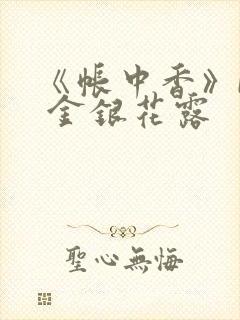 《帐中香》
金银花露
聖心無悔